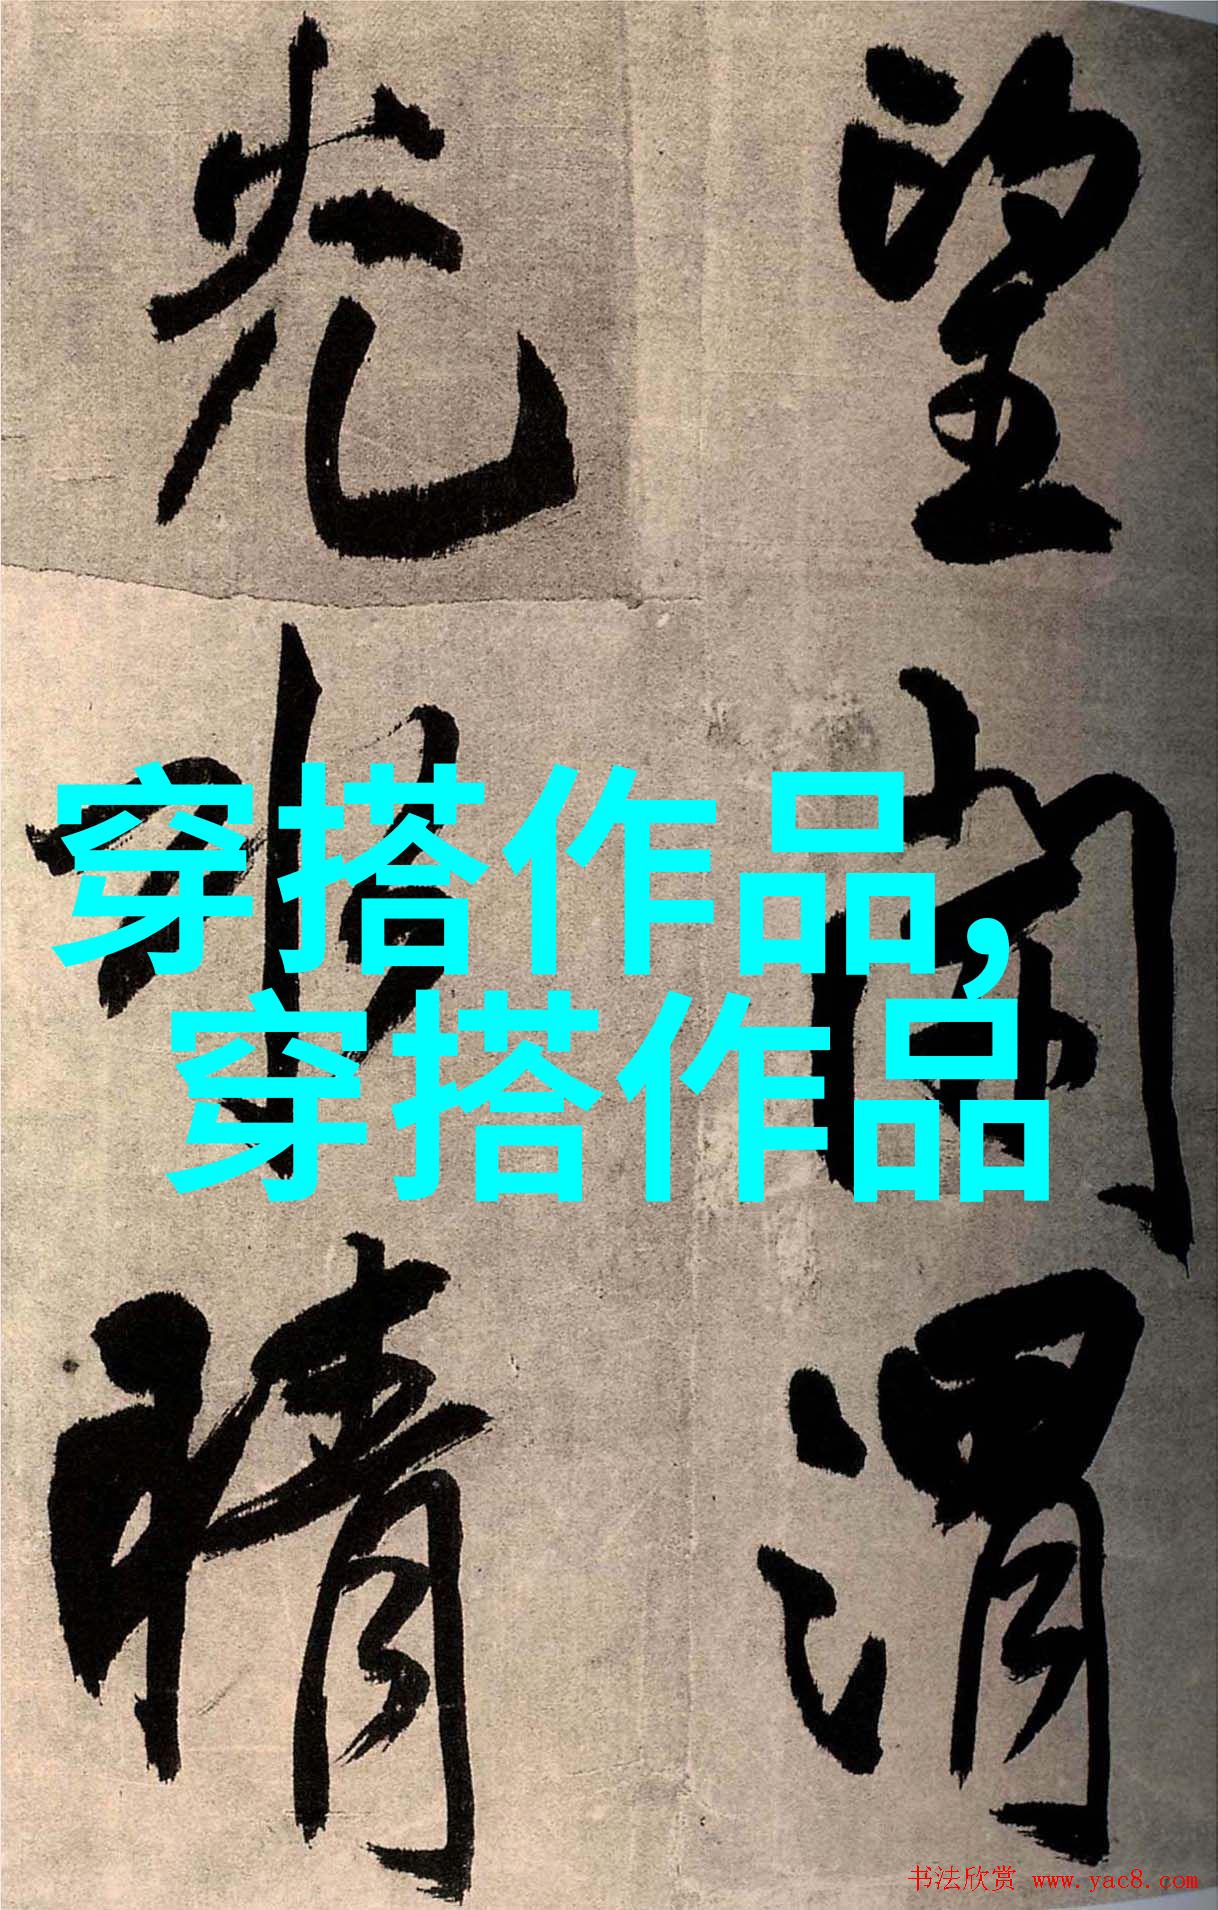 望渭
光晴
穿搭作品,
穿搭作品
书法欣赏 www.yac8.com